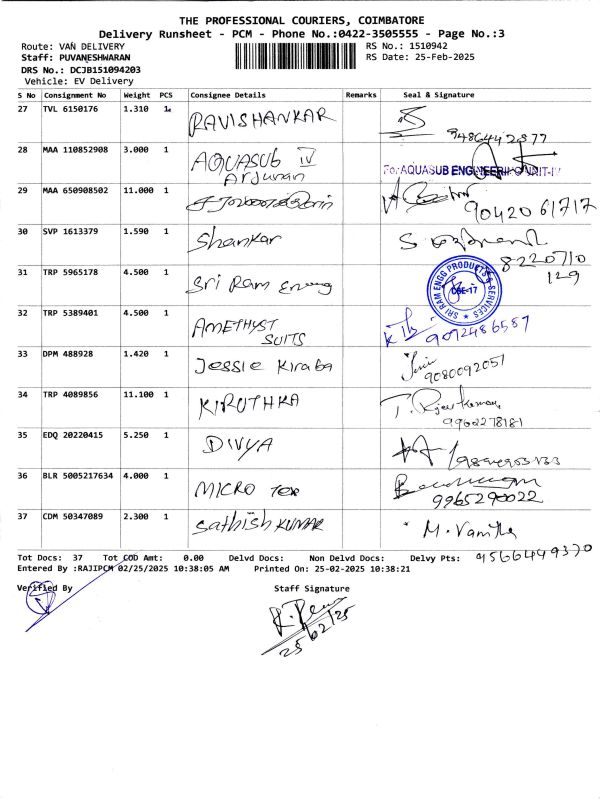 THE PROFESSIONAL COURIERS, COIMBATORE
Delivery Runsheet - PCM - Phone No.:0422-3505555 - Page No.:3
Route: VAN DELIVERY RS No.: 1510942
Staff: PUVANESHWARAN RS Date: 25-Feb-2025
DRS No.: DCJB151094203
Vehicle: EV Delivery
S No Consignment No Weight PCS Consignee Details Remarks Seal & Signature
27 TVL 6150176 1.310 1 RAVISHANKAR
9486442877
28 MAA 110852908 3.000 1 AQUASUB IV
Arjunan
For AQUASUB ENGINEERING UNIT-IV
29 MAA 650908502 11.000 1
9042061717
30 SVP 1613379 1.590 1 Shankar
8220710
129
31 TRP 5965178 4.500 1 Sri Ram Engg
SRI RAM ENGG PRODUCTS & SERVICES
CBE-17
32 TRP 5389401 4.500 1 AMETHYST
SUITS
9092486587
33 DPM 488928 1.420 1 Jessie Kiraba
9080092057
34 TRP 4089856 11.100 1 KIRUTHKA T. Rajeshkumar
9960278181
35 EDQ 20220415 5.250 1 DIVYA
36 BLR 5005217634 4.000 1 MICRO TEX
9965290022
37 CDM 50347089 2.300 1 Sathish KUMAR M. Vanitha
9566449370
Tot Docs: 37 Tot COD Amt: 0.00 Delvd Docs: Non Delvd Docs: Delvy Pts:
Entered By :RAJIPCM 02/25/2025 10:38:05 AM Printed On: 25-02-2025 10:38:21
Verified By Staff Signature
25/02/25